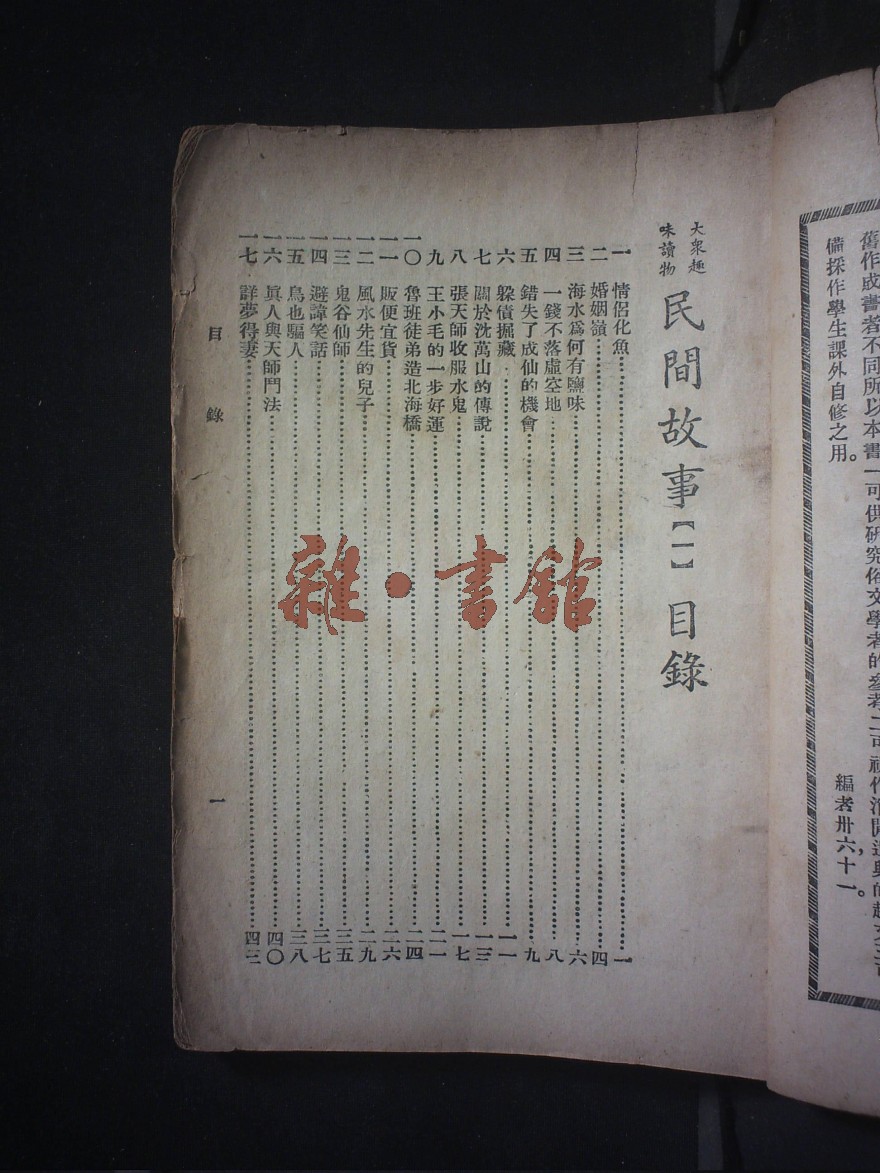 舊作或書者不同所以本書一可供研究俗文學者的參考二可視作消閒遣興的趣文三可
備採作學生課外自修之用。
編者卅六,十一。
大衆趣味讀物
民間故事【一】目錄
一 情侶化魚 一
二 婚姻嶺 四
三 海水爲何有鹽味 六
四 一錢不落虛空地 八
五 錯失了成仙的機會 九
六 躲債掘藏 一一
七 關於沈萬山的傳說 一三
八 張天師收服水鬼 一七
九 王小毛的一步好運 二一
一〇 魯班徒弟造北海橋 二四
一一 販便宜貨 二六
一二 風水先生的兒子 二九
一三 鬼谷仙師 三五
一四 避諱笑話 三七
一五 鳥也驅人 三八
一六 眞人與天師鬥法 四〇
一七 詳夢得妻 四三
目錄 一
雜·書館